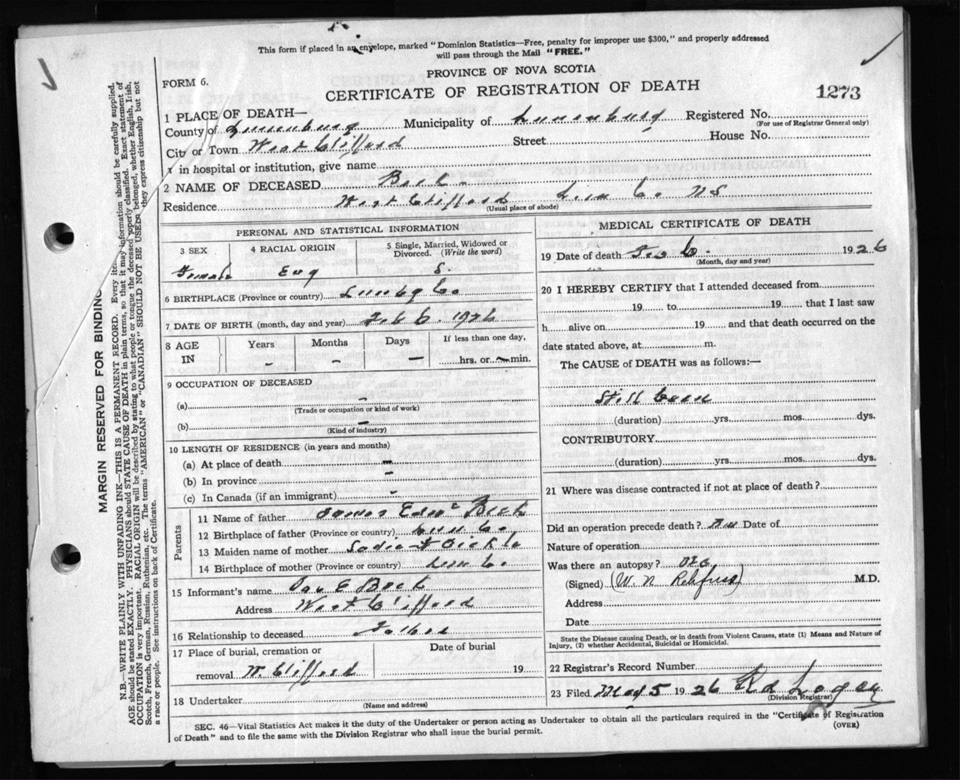 This form if placed in an envelope, marked "Dominion Statistics—Free, penalty for improper use $300," and properly addressed
will pass through the Mail "FREE."
PROVINCE OF NOVA SCOTIA
FORM 6.
CERTIFICATE OF REGISTRATION OF DEATH
1273
1 PLACE OF DEATH—
County of Lunenburg Municipality of Lunenburg Registered No.
(For use of Registrar General only)
City or Town West Clifford Street House No.
x in hospital or institution, give name
2 NAME OF DECEASED Beck
Residence West Clifford Lun Co. NS
(Usual place of abode)
PERSONAL AND STATISTICAL INFORMATION
3 SEX 4 RACIAL ORIGIN 5 Single, Married, Widowed or Divorced. (Write the word)
Female Eng S.
6 BIRTHPLACE (Province or country) Lunbg Co
7 DATE OF BIRTH (month, day and year) Feb 6. 1926
8 AGE IN Years Months Days If less than one day,
– – – hrs. or – min.
9 OCCUPATION OF DECEASED
(a) –
(Trade or occupation or kind of work)
(b) –
(Kind of industry)
10 LENGTH OF RESIDENCE (in years and months)
(a) At place of death –
(b) In province –
(c) In Canada (if an immigrant) –
Parents
11 Name of father James Edwd Beck
12 Birthplace of father (Province or country) Lun Co.
13 Maiden name of mother Sadie
14 Birthplace of mother (Province or country) Lun Co.
15 Informant's name Jas E Beck
Address West Clifford
16 Relationship to deceased Father
17 Place of burial, cremation or removal W. Clifford
Date of burial
19
18 Undertaker
(Name and address)
MEDICAL CERTIFICATE OF DEATH
19 Date of death Feb 6. 1926
(Month, day and year)
20 I HEREBY CERTIFY that I attended deceased from
19 to 19 that I last saw
h alive on 19 and that death occurred on the
date stated above, at m.
The CAUSE of DEATH was as follows:—
Still born
(duration) yrs. mos. dys.
CONTRIBUTORY
(duration) yrs. mos. dys.
21 Where was disease contracted if not at place of death?
Did an operation precede death? No Date of
Nature of operation
Was there an autopsy? No
(Signed) (W. N. Rehfuss) M.D.
Address
Date
State the Disease causing Death, or in death from Violent Causes, state (1) Means and Nature of
Injury, (2) whether Accidental, Suicidal or Homicidal.
22 Registrar's Record Number
23 Filed May 5 1926 Logan
(Division Registrar)
SEC. 46—Vital Statistics Act makes it the duty of the Undertaker or person acting as Undertaker to obtain all the particulars required in the "Certificate of Registration
of Death" and to file the same with the Division Registrar who shall issue the burial permit.
(OVER)
MARGIN RESERVED FOR BINDING
N.B.—WRITE PLAINLY WITH UNFADING INK—THIS IS A PERMANENT RECORD. Every item information should be carefully supplied.
AGE should be stated EXACTLY. PHYSICIANS should STATE CAUSE OF DEATH in plain terms, so that it may be properly classified. Exact statement of
OCCUPATION is very important. RACIAL ORIGIN will be described by stating to what people or tongue the deceased belonged, whether English, Irish,
Scotch, French, German, Russian, Ruthenian, etc. The terms "AMERICAN" or "CANADIAN" SHOULD NOT BE USED, they express citizenship but not
a race or people. See instructions on back of Certificate.